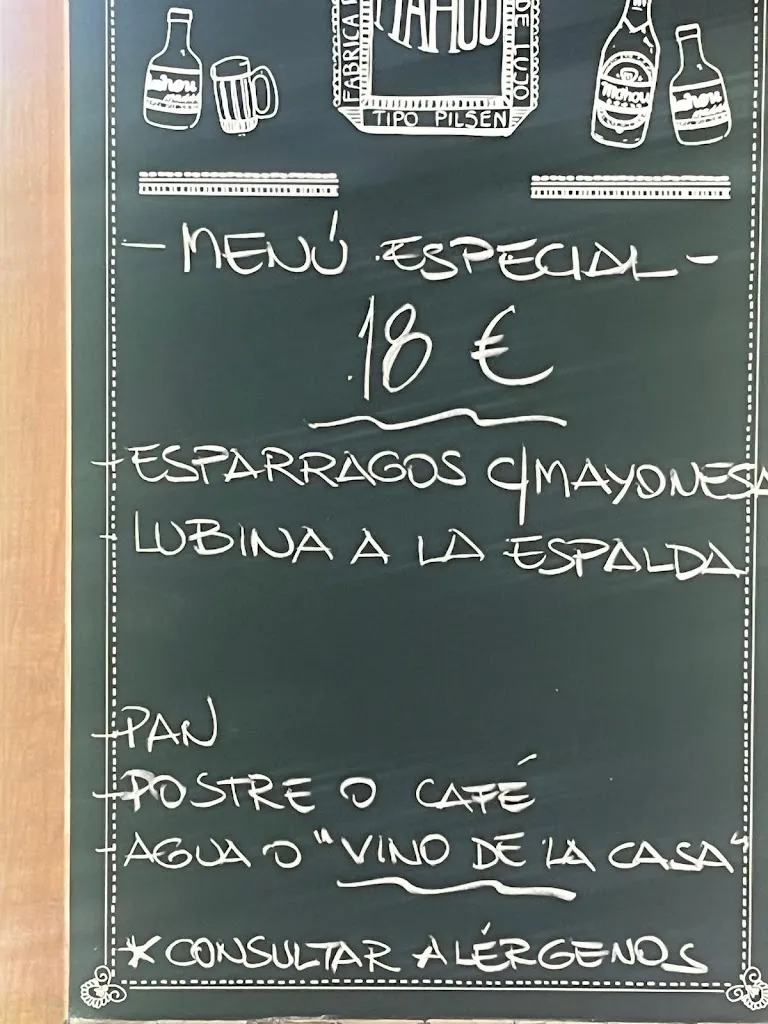 FABRICA
MAHOU
DE LUJO
TIPO PILSEN
Mahou
- MENÚ ESPECIAL -
18 €
- ESPARRAGOS C/MAYONESA
- LUBINA A LA ESPALDA
- PAN
- POSTRE O CAFÉ
- AGUA O "VINO DE LA CASA"
* CONSULTAR ALÉRGENOS